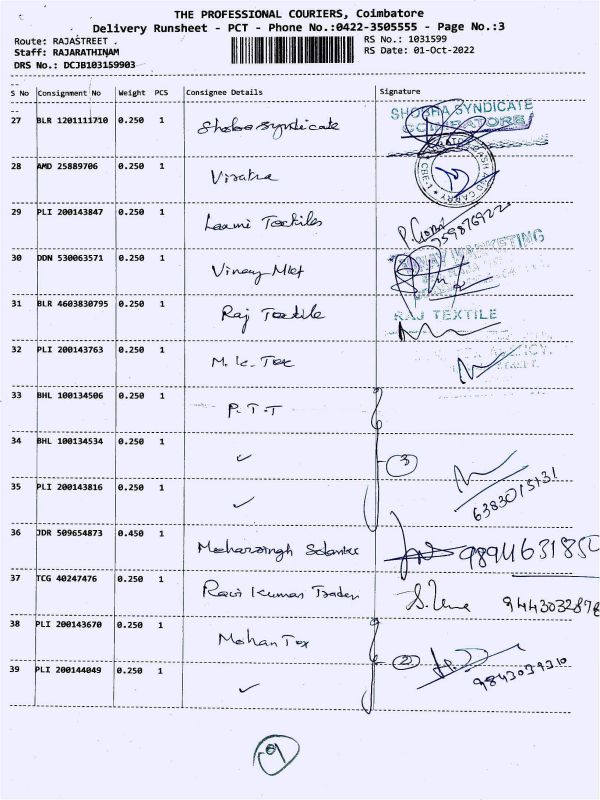 THE PROFESSIONAL COURIERS, Coimbatore
Delivery Runsheet - PCT - Phone No.:0422-3505555 - Page No.:3
Route: RAJASTREET . RS No.: 1031599
Staff: RAJARATHINAM RS Date: 01-Oct-2022
DRS No.: DCJB103159903
S No Consignment No Weight PCS Consignee Details Signature
27 BLR 1201111710 0.250 1 Shoba Syndicate SHOBHA SYNDICATE
COIMBATORE
28 AMD 25889706 0.250 1 CASH AND CARRY CBE-1
29 PLI 200143847 0.250 1 Laxmi Textiles
30 DDN 530063571 0.250 1 Vinay Mket VINAY MARKETING
31 BLR 4603830795 0.250 1 Raj Textile RAJ TEXTILE
32 PLI 200143763 0.250 1 M.K. Tex
33 BHL 100134506 0.250 1 P.T.T
34 BHL 100134534 0.250 1 ✓ 3
35 PLI 200143816 0.250 1 ✓ 6383015131
36 JDR 509654873 0.450 1
37 TCG 40247476 0.250 1 Ravi Kumar Traders 9443032878
38 PLI 200143670 0.250 1 Mohan Tex
39 PLI 200144049 0.250 1 ✓ 2 9843039310